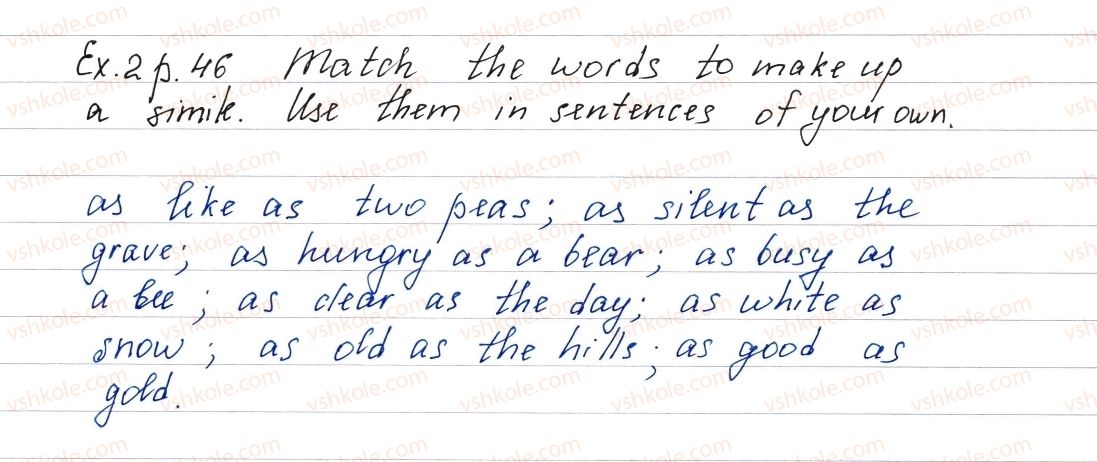 Ex. 2 p. 46 Match the words to make up
a simile. Use them in sentences of your own.
as like as two peas; as silent as the
grave; as hungry as a bear; as busy as
a bee; as clear as the day; as white as
snow; as old as the hills; as good as
gold.
vshkole.com